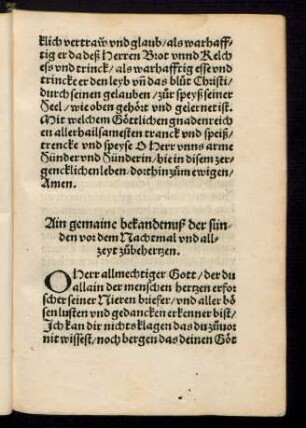 klich vertraw vnd glaub / als warhaff-
tig er da deß Herren Brot vnnd Kelch
ess vnd trinck / als warhafftig esse vnd
trincke er den leyb vñ das blůt Christi /
durch seinen gelauben / zůr speyß seiner
Seel / wie oben gehört vnd gelernet ist.
Mit welchem Göttlichen gnadenreich
en allerhailsamesten tranck vnd speiß /
trencke vnd speyse O Herr vnns arme
Sünder vnd Sünderin / hie in disem zer-
gencklichen leben / dort hin zům ewigen /
Amen.
Ain gemaine bekandtnuß der sün-
den vor dem Nachtmal vnd all-
zeyt zůbehertzen.
O Herr allmechtiger Gott / der du
allain der menschen hertzen erfor-
scher seiner Nieren briefer / vnd aller bö-
sen lusten vnd gedancken erkenner bist /
Ich kan dir nichts klagen das du zůuor
nit wissest / noch bergen das deinen Göt